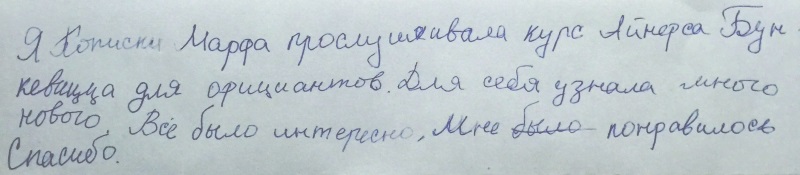 Я Кописки Марфа прослушивала курс Айнерса Бун-
кевацца для официантов. Для себя узнала много
нового. Всё было интересно, Мне было понравилось
Спасибо.